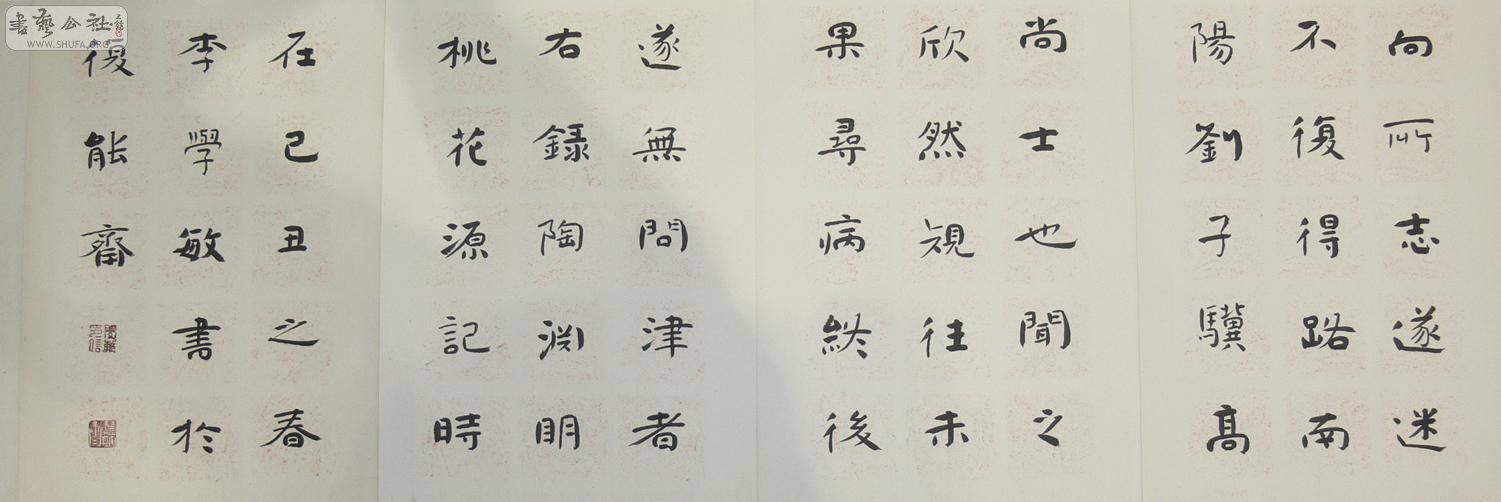 向所志遂迷
不復得路南
陽劉子驥高
尚士也聞之
欣然規往未
果尋病終後
遂無問津者
右録陶渊明
桃花源記時
在己丑之春
李學敏書於
復能齋
書藝公社
WWW.SHUFA.ORG